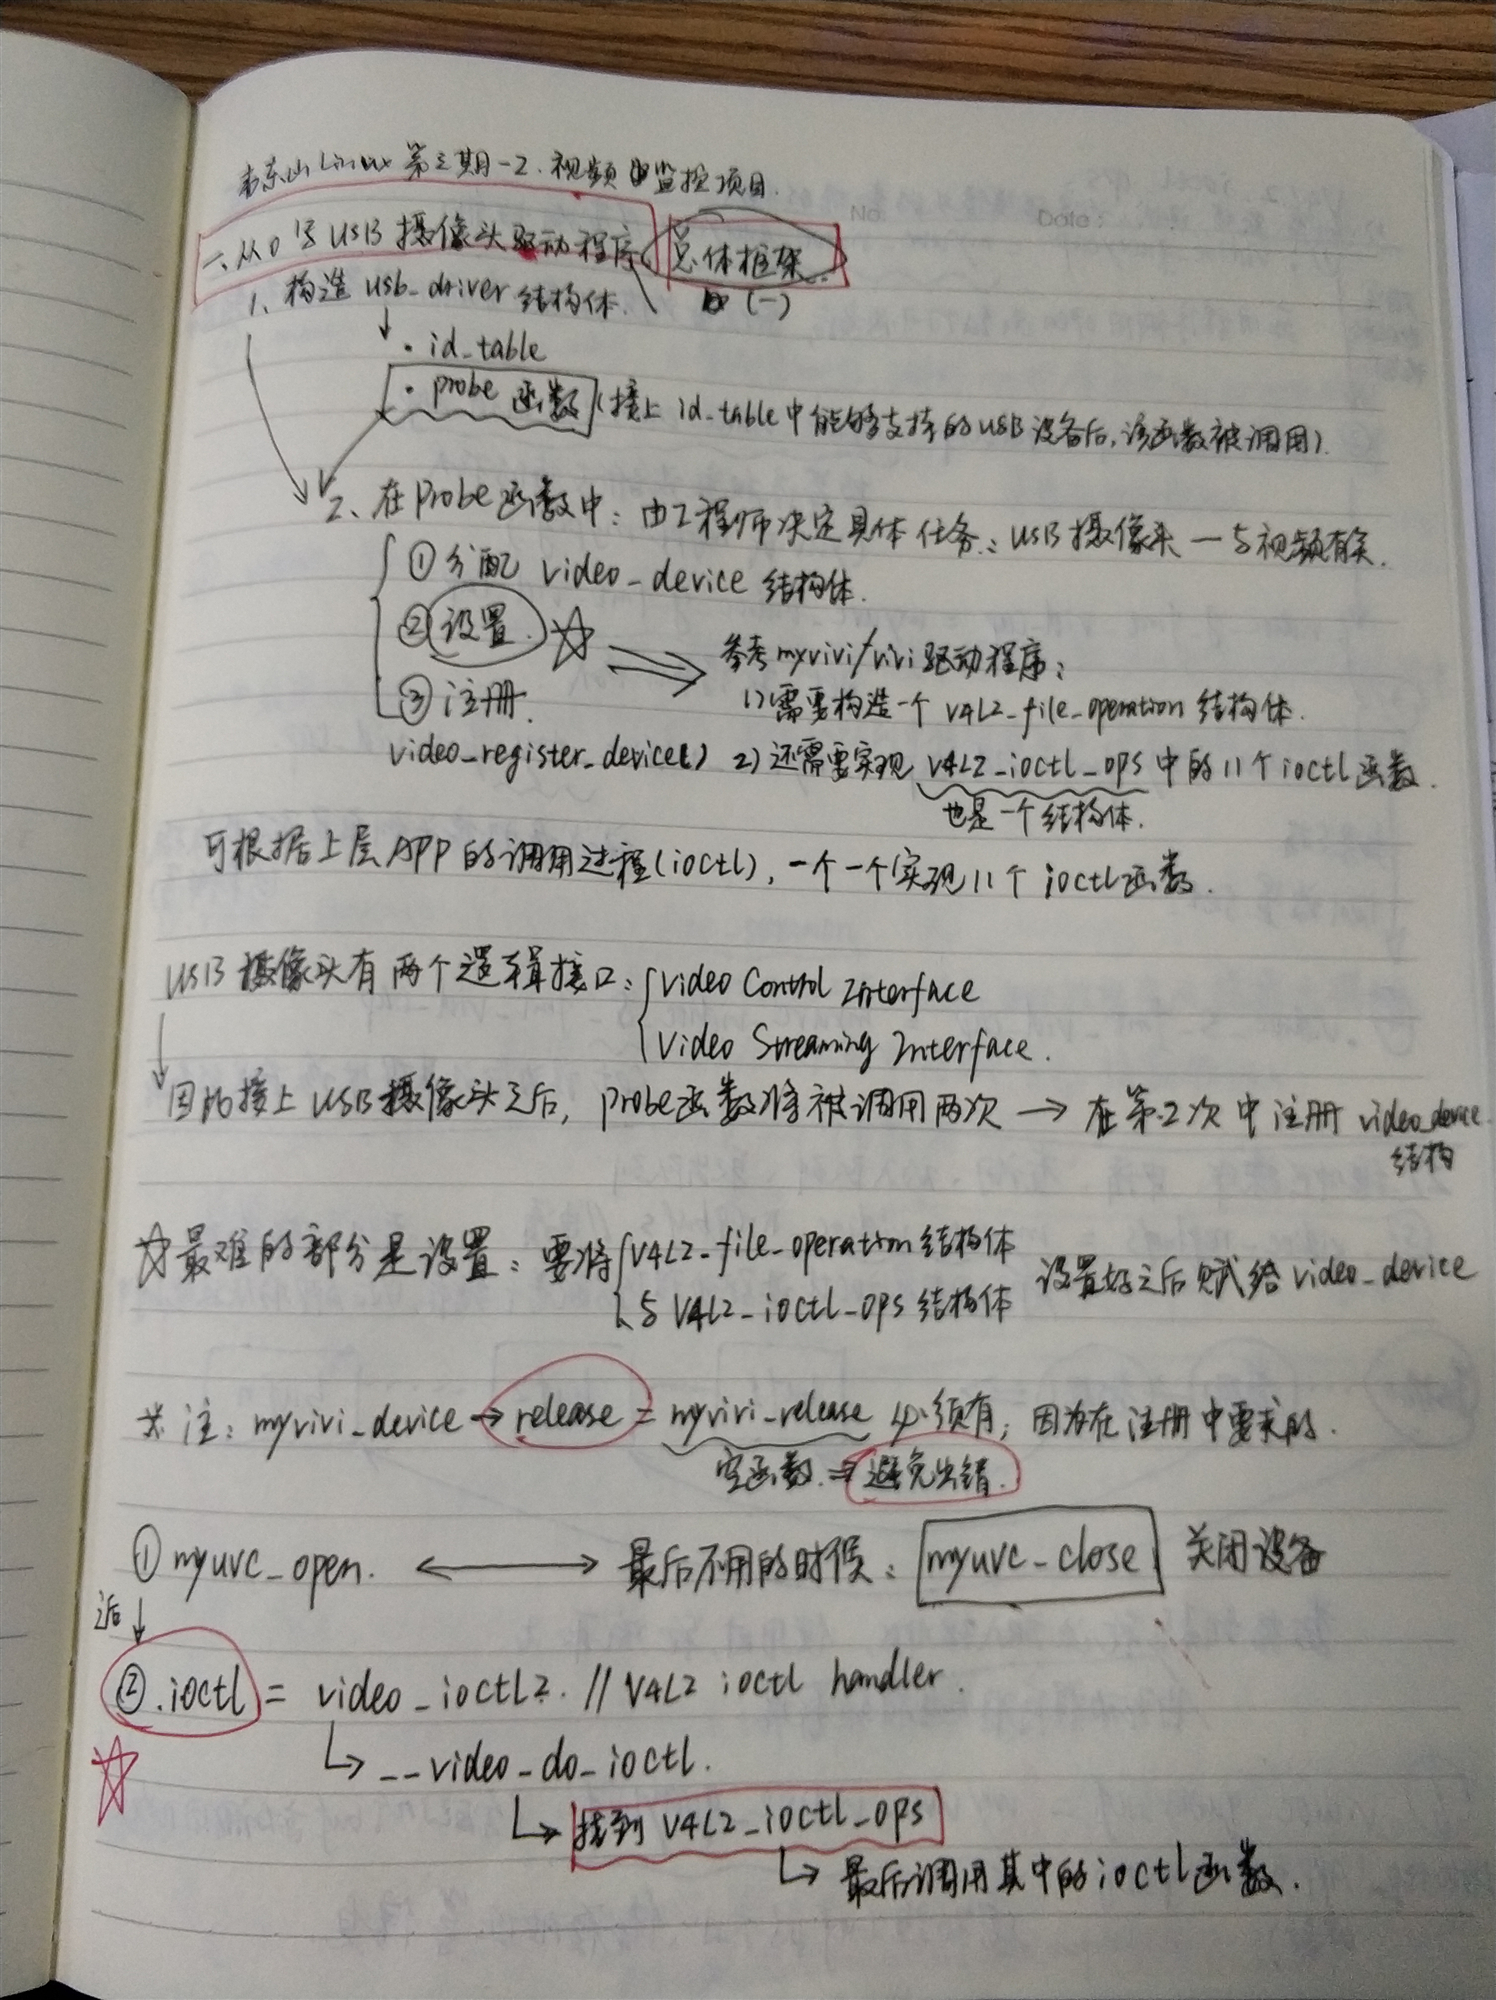 韦东山Linux第三期-2.视频监控项目.
No.
Date:
一、从0写USB摄像头驱动程序 总体框架
(一)
1、构造usb_driver结构体.
↓
·id_table
·probe函数(接上id_table中能够支持的USB设备后,该函数被调用).
2、在probe函数中:由工程师决定具体任务:USB摄像头—与视频有关.
①分配video_device结构体.
②设置. ☆ ⇒ 参考myvivi/vivi驱动程序:
③注册. 1)需要构造一个V4L2_file_operation结构体.
video_register_device() 2)还需要实现V4L2_ioctl_ops中的11个ioctl函数.
也是一个结构体.
可根据上层APP的调用过程(ioctl),一个一个实现11个ioctl函数.
USB摄像头有两个逻辑接口:{Video Control Interface
Video Streaming Interface.
因此接上USB摄像头之后,probe函数将被调用两次→在第2次中注册video_device
结构
☆最难的部分是设置:要将{V4L2_file_operation结构体
与V4L2_ioctl_ops结构体 设置好之后赋给video_device
※注:myvivi_device→release=myvivi_release 必须有,因为在注册中要求的.
空函数.⇒避免出错.
①myuvc_open. ⟷ 最后不用的时候:myuvc_close 关闭设备
之后↓
②.ioctl = video_ioctl2. // V4L2 ioctl handler.
☆ ↳ __video_do_ioctl.
↳ 找到V4L2_ioctl_ops
↳ 最后调用其中的ioctl函数.